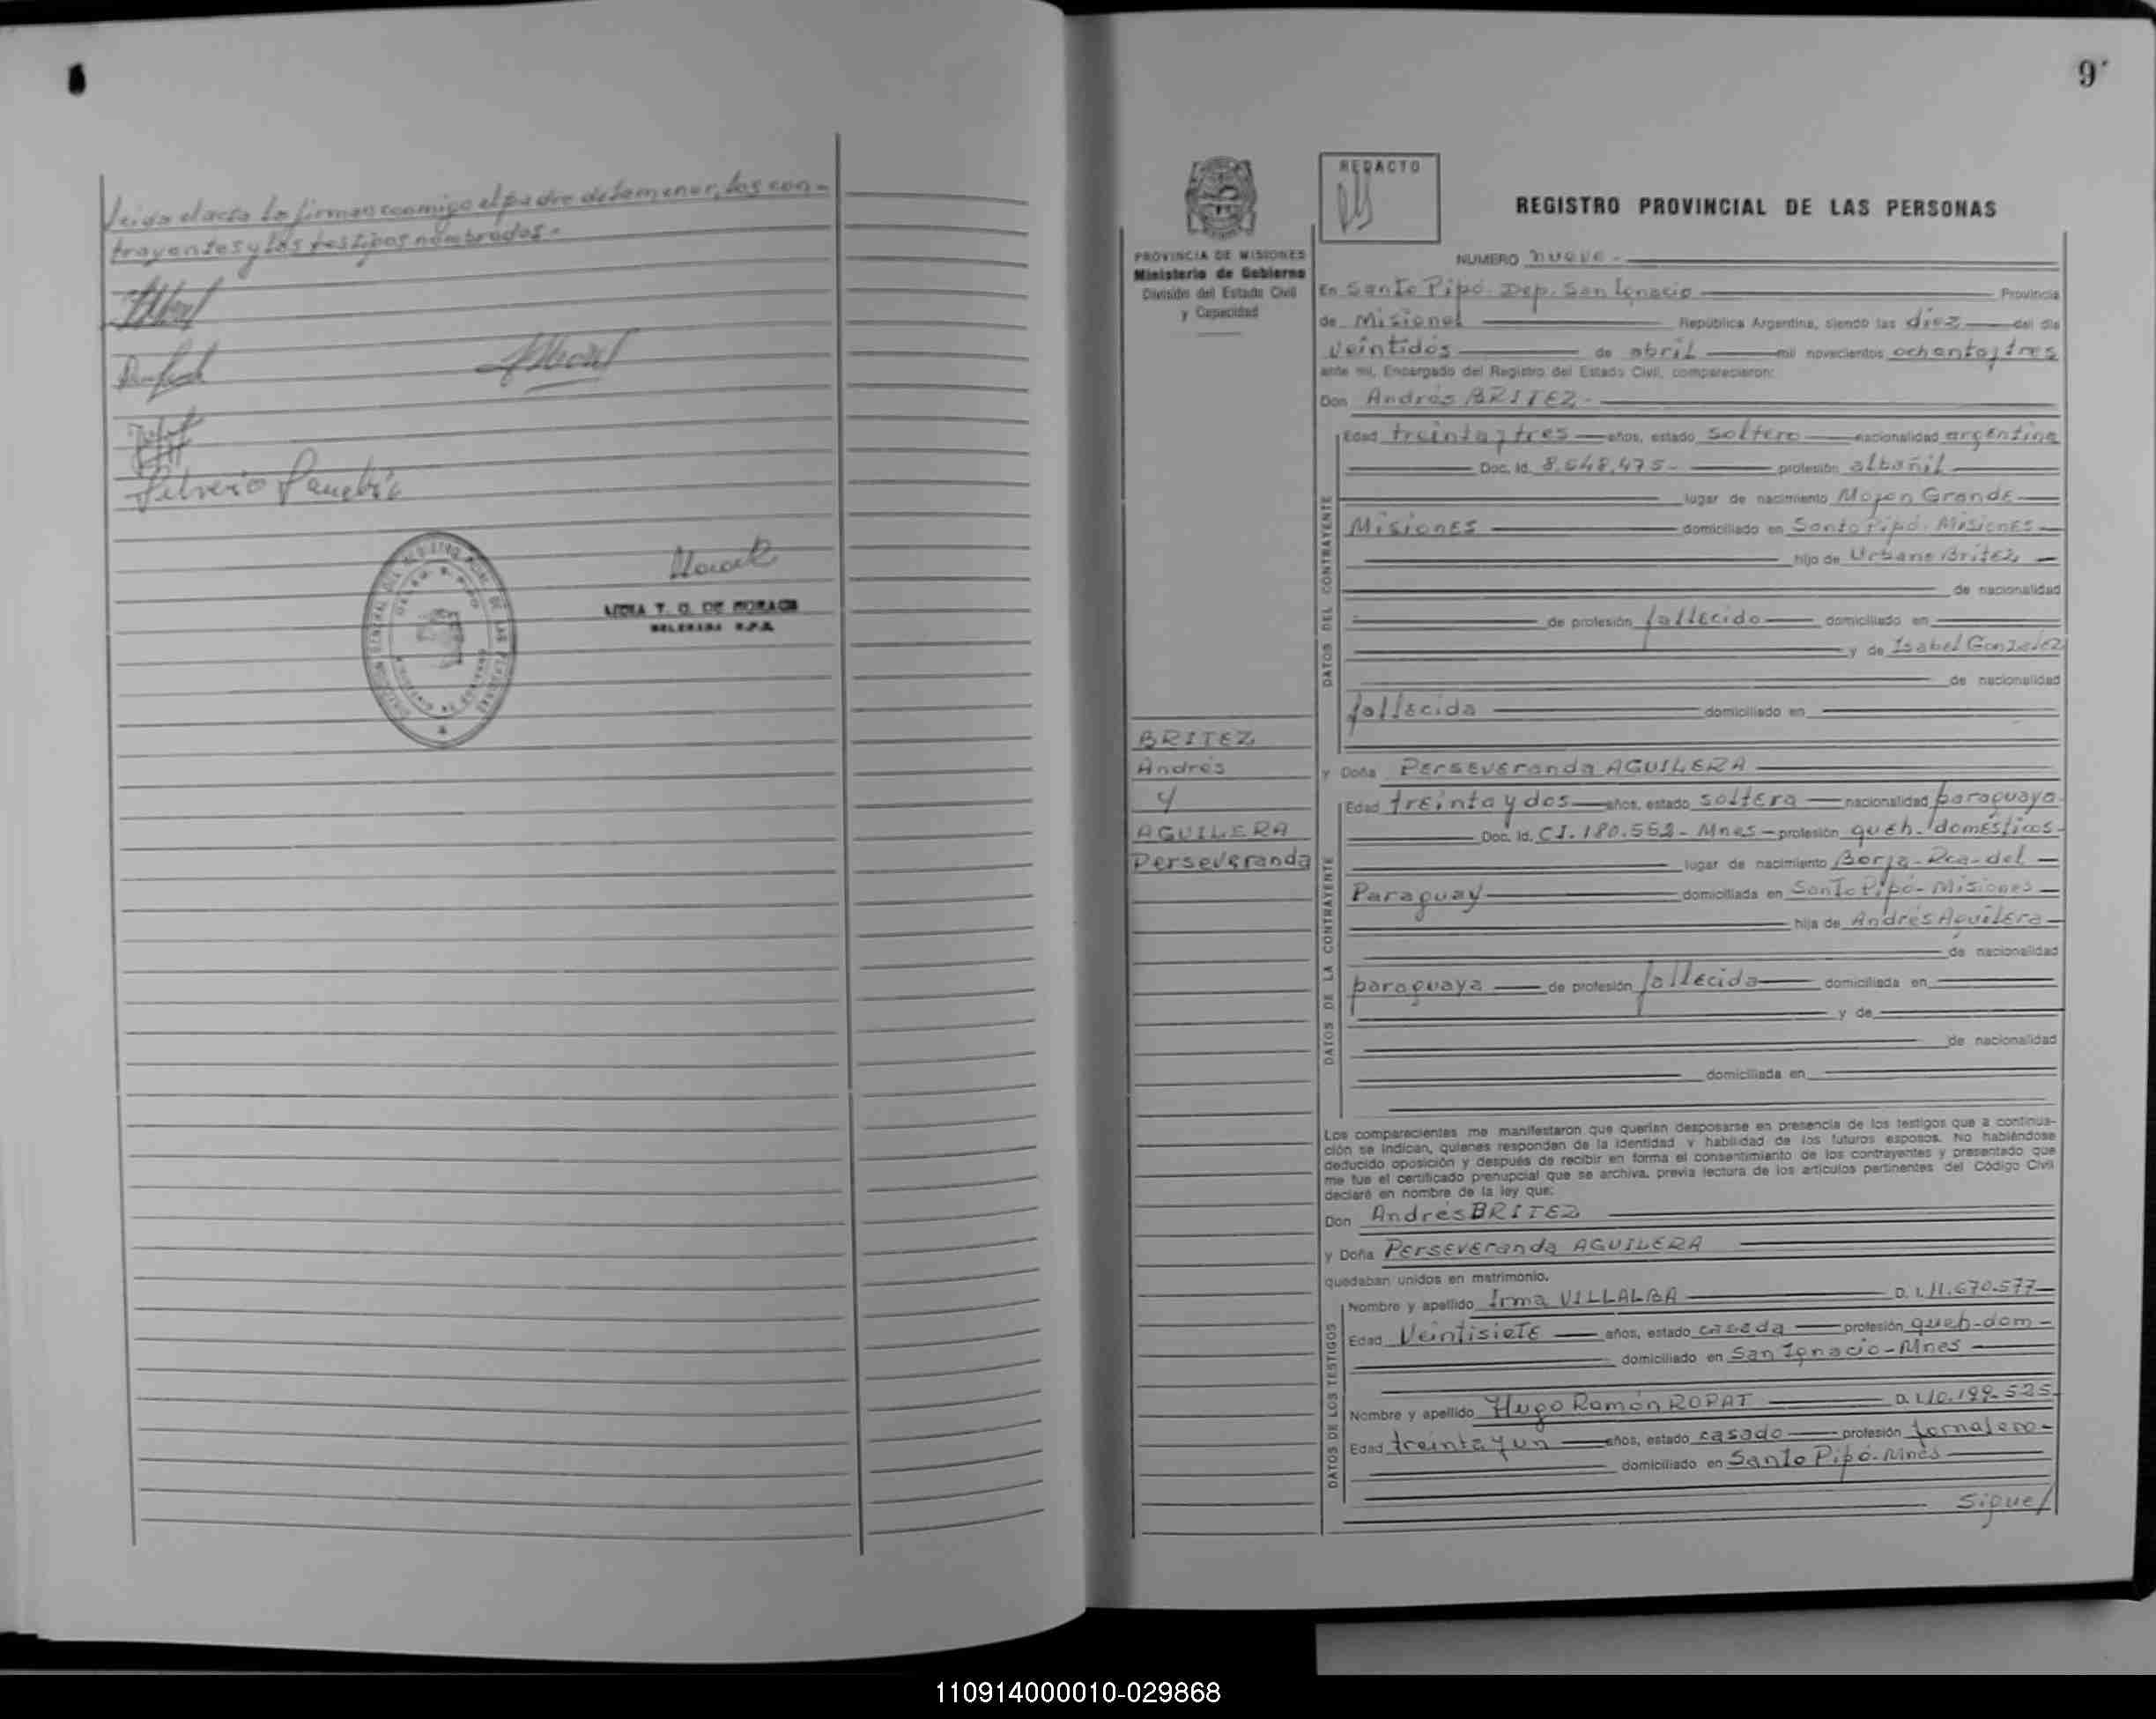 Leida el acta la firman conmigo el padre de la menor, los con-
trayentes y los testigos nombrados.-
Silverio
LIDIA T. G. DE
9
REDACTO
REGISTRO PROVINCIAL DE LAS PERSONAS
PROVINCIA DE MISIONES
Ministerio de Gobierno
División del Estado Civil
y Capacidad
NUMERO nueve.-
En Santo Pipó. Dep. San Ignacio Provincia
de Misiones República Argentina, siendo las diez del día
veintidós de abril mil novecientos ochenta y tres
ante mi, Encargado del Registro del Estado Civil, comparecieron:
Don Andrés BRITEZ.-
DATOS DEL CONTRAYENTE
Edad treinta y tres años, estado soltero nacionalidad argentina
Doc. Id. 8.548.475- profesión albañil
lugar de nacimiento Mojon Grande
Misiones domiciliado en Santo Pipó. Misiones
hijo de Urbano Britez
de nacionalidad
de profesión fallecido domiciliado en
y de Isabel Gonzalez
de nacionalidad
fallecida domiciliado en
BRITEZ
Andrés
y
AGUILERA
Perseveranda
y Doña Perseveranda AGUILERA
DATOS DE LA CONTRAYENTE
Edad treinta y dos años, estado soltera nacionalidad paraguaya
Doc. Id. CI. 180.552- Mnes profesión queh. domésticos
lugar de nacimiento Borja-Rca-del
Paraguay domiciliada en Santo Pipó- Misiones
hija de Andrés Aguilera
de nacionalidad
paraguaya de profesión fallecida domiciliada en
y de
de nacionalidad
domiciliada en
Los comparecientes me manifestaron que querían desposarse en presencia de los testigos que a continua-
ción se indican, quienes responden de la identidad y habilidad de los futuros esposos. No habiéndose
deducido oposición y después de recibir en forma el consentimiento de los contrayentes y presentado que
me fue el certificado prenupcial que se archiva, previa lectura de los artículos pertinentes del Código Civil
declaré en nombre de la ley que:
Don Andrés BRITEZ
y Doña Perseveranda AGUILERA
quedaban unidos en matrimonio.
DATOS DE LOS TESTIGOS
Nombre y apellido Irma VILLALBA D. I. 11.670.577
Edad Veintisiete años, estado casada profesión queh-dom-
domiciliado en San Ignacio-Mnes
Nombre y apellido Hugo Ramón RODAT D. I. 10.199.525
Edad treinta y un años, estado casado profesión jornalero-
domiciliado en Santo Pipó-Mnes
Sigue/
110914000010-029868